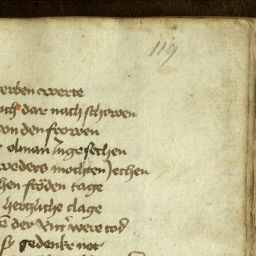 119
erben werte
ach dar nach schowen
von den frowen
olman Ingesechen
weders mochten Jechen
hen fröden tage
hertzliche clage
der were tod
sy gedenke not